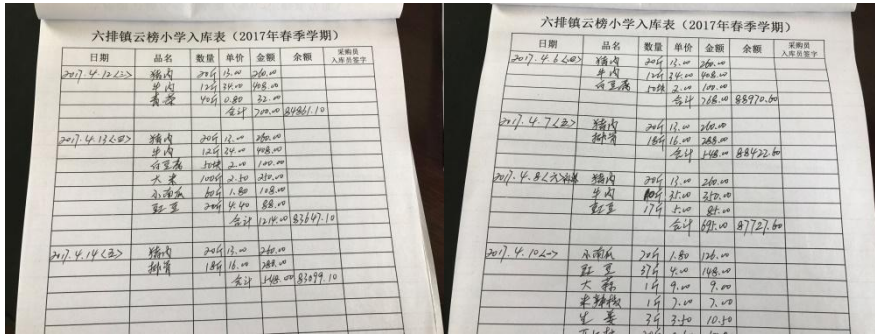 六排镇云榜小学入库表（2017年春季学期）
日期 品名 数量 单价 金额 余额 采购员入库员签字
2017.4.12(三) 猪肉 20斤 13.00 260.00
牛肉 12斤 34.00 408.00
青菜 40斤 0.80 32.00
合计 700.00 84861.10
2017.4.13(四) 猪肉 20斤 13.00 260.00
牛肉 12斤 34.00 408.00
白豆腐 50块 2.00 100.00
大米 100斤 2.50 250.00
小南瓜 60斤 1.80 108.00
豇豆 20斤 4.40 88.00
合计 1214.00 83647.10
2017.4.14(五) 猪肉 20斤 13.00 260.00
排骨 18斤 16.00 288.00
合计 548.00 83099.10
六排镇云榜小学入库表（2017年春季学期）
日期 品名 数量 单价 金额 余额 采购员入库员签字
2017.4.6(四) 猪肉 20斤 13.00 260.00
牛肉 12斤 34.00 408.00
白豆腐 50块 2.00 100.00
合计 768.00 88970.60
2017.4.7(五) 猪肉 20斤 13.00 260.00
排骨 18斤 16.00 288.00
合计 548.00 88422.60
2017.4.8(六) 猪肉 20斤 13.00 260.00
牛肉 10斤 35.00 350.00
豇豆 17斤 5.00 85.00
合计 695.00 87727.60
2017.4.10(一) 小南瓜 70斤 1.80 126.00
豇豆 37斤 4.00 148.00
大蒜 1斤 9.00 9.00
米辣椒 1斤 7.00 7.00
生姜 3斤 3.50 10.50